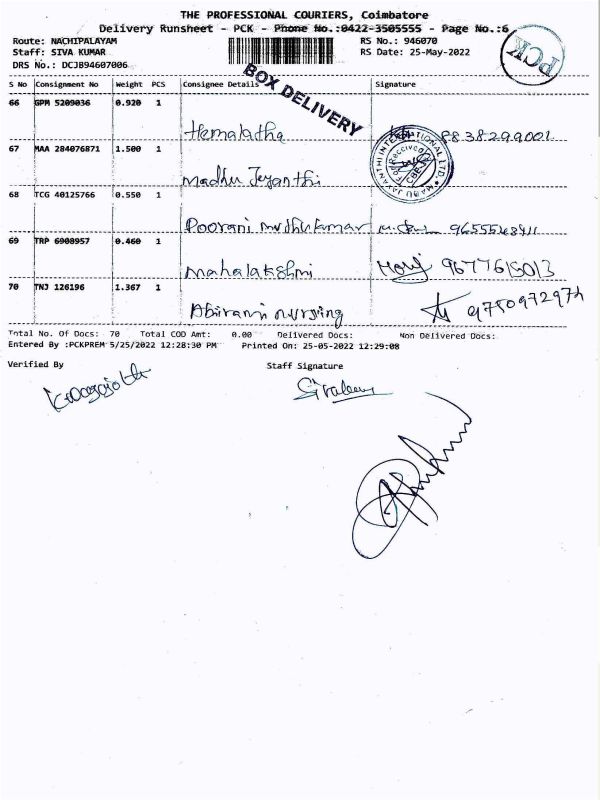 THE PROFESSIONAL COURIERS, Coimbatore
Delivery Runsheet - PCK - Phone No.:0422-3505555 - Page No.:6
Route: NACHIPALAYAM
RS No.: 946070
Staff: SIVA KUMAR
RS Date: 25-May-2022
DRS No.: DCJB94607006
PCK
BOX DELIVERY
S No Consignment No Weight PCS Consignee Details Signature
66 GPM 5209036 0.920 1
Hemalatha 8838299001
67 MAA 284076871 1.500 1
Madhu Jeyanthi
MADHU JAYANTHI INTERNATIONAL LTD.
68 TCG 40125766 0.550 1
Poorani muthukumar
69 TRP 6908957 0.460 1
Mahalakshmi 9677615013
70 TNJ 126196 1.367 1
Abirami nursing 9750972974
Total No. Of Docs: 70 Total COD Amt: 0.00 Delivered Docs: Non Delivered Docs:
Entered By :PCKPREM 5/25/2022 12:28:30 PM Printed On: 25-05-2022 12:29:08
Verified By Staff Signature